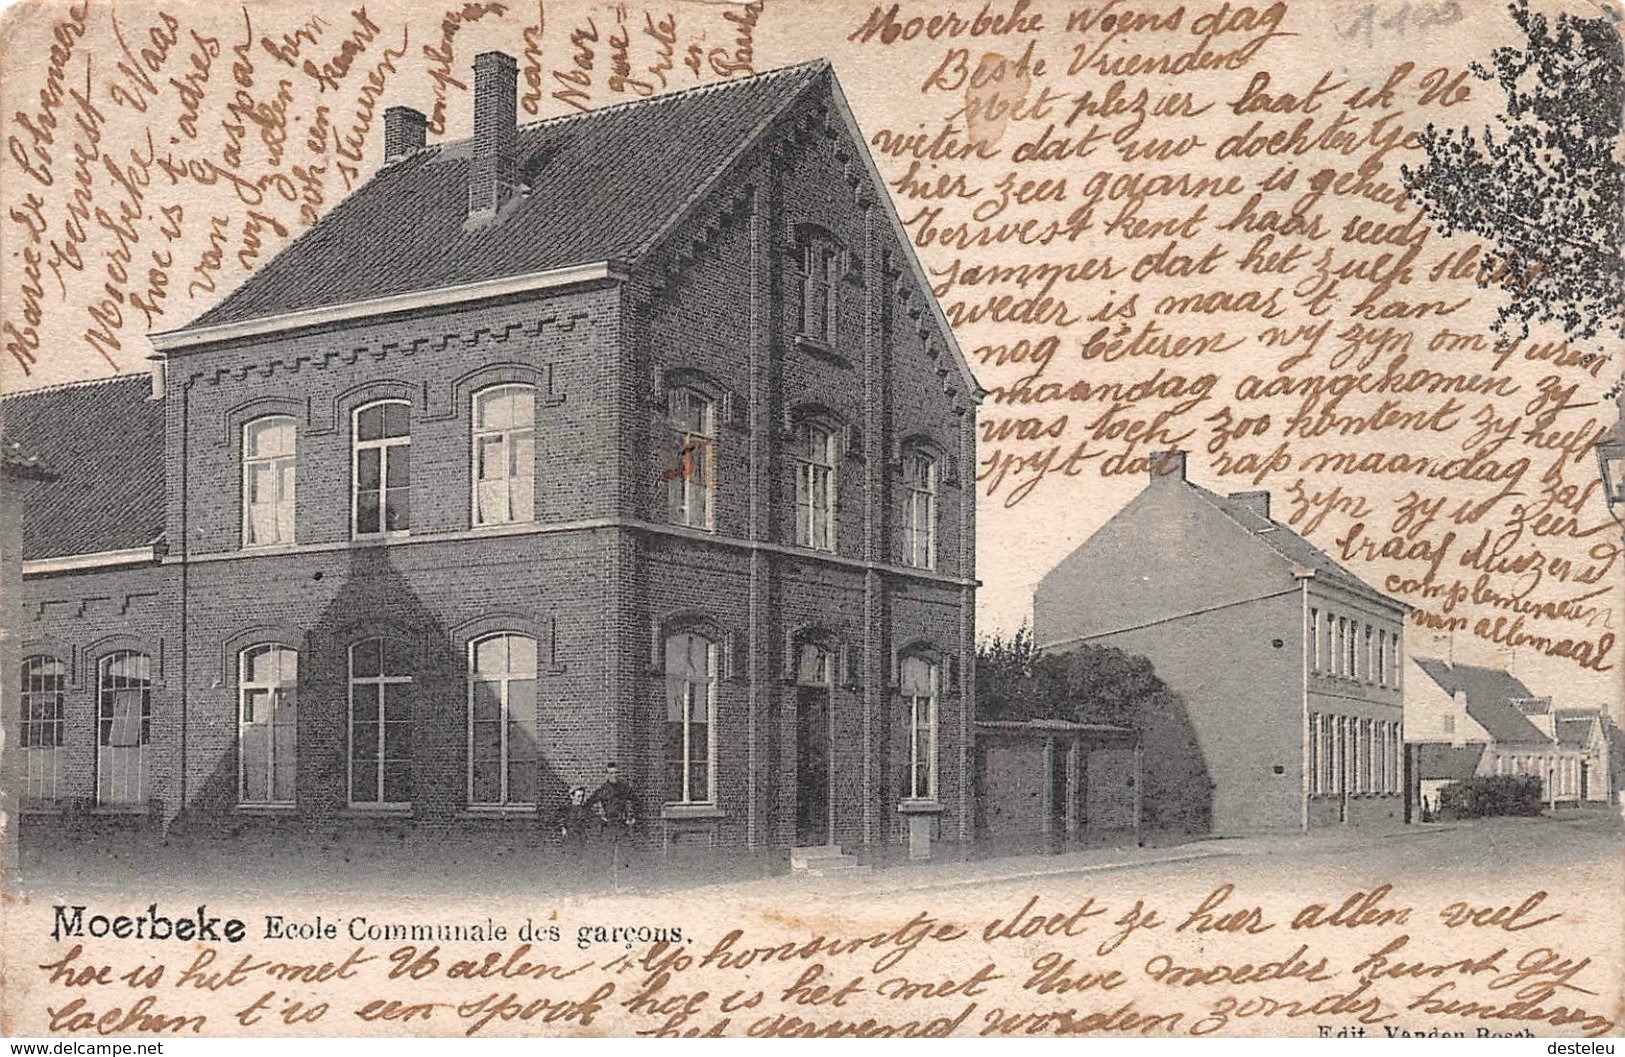 Moerbeke Woensdag
Beste Vrienden
Met plezier laat ik U
weten dat uw dochtertje
hier zeer gaarne is
Eerwest kent haar reeds
jammer dat het zulk
weder is maar t kan
nog beteren wy zyn om 4 uren
maandag aangekomen zy
was toch zoo kontent zy heeft
spyt dat rap maandag zal
zyn zy is zeer
braaf duizend
complementen
van altemaal
Marie De
Eerwest
Moerbeke Waas
hoe is t'adres
van Gaspar
wy zullen hem
ook een kaart
stuuren
complem
aan
Mar
gue=
rite
en
Paula
Moerbeke Ecole Communale des garçons.
Alphonsintje doet ze hier allen veel
hoe is het met U allen
lachen t'is een spook hoe is het met Uwe moeder kunt gy
het gewend worden zonder kinderen
Edit. Vanden Bosch
www.delcampe.net
desteleu